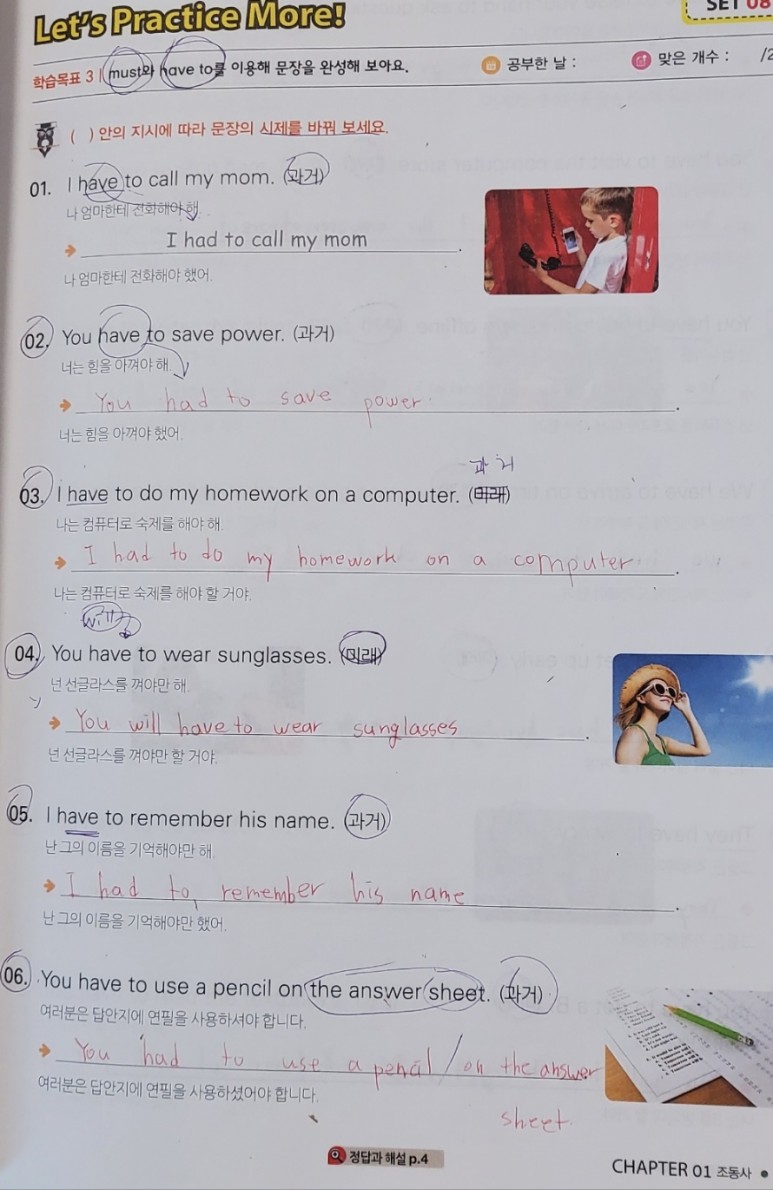 Let's Practice More!
SET 08
학습목표 3 | must와 have to를 이용해 문장을 완성해 보아요.
공부한 날 :
맞은 개수 : /2
( ) 안의 지시에 따라 문장의 시제를 바꿔 보세요.
01. I have to call my mom. (과거)
나 엄마한테 전화해야 해.
I had to call my mom.
나 엄마한테 전화해야 했어.
02. You have to save power. (과거)
너는 힘을 아껴야 해.
You had to save power.
너는 힘을 아껴야 했어.
과거
03. I have to do my homework on a computer. (미래)
나는 컴퓨터로 숙제를 해야 해.
I had to do my homework on a computer.
나는 컴퓨터로 숙제를 해야 할 거야.
will
04. You have to wear sunglasses. (미래)
넌 선글라스를 껴야만 해.
You will have to wear sunglasses.
넌 선글라스를 껴야만 할 거야.
05. I have to remember his name. (과거)
난 그의 이름을 기억해야만 해.
I had to remember his name.
난 그의 이름을 기억해야만 했어.
06. You have to use a pencil on the answer sheet. (과거)
여러분은 답안지에 연필을 사용하셔야 합니다.
You had to use a pencil / on the answer
여러분은 답안지에 연필을 사용하셨어야 합니다.
sheet.
정답과 해설 p.4
CHAPTER 01 조동사